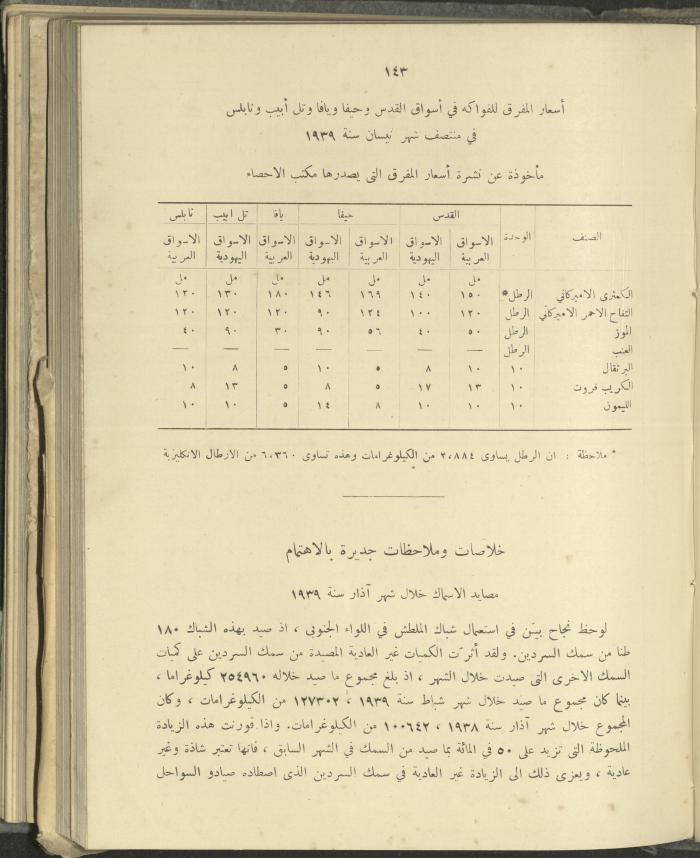 ١٤٣
أسعار المفرق للفواكه في أسواق القدس وحيفا ويافا وتل أبيب ونابلس
في منتصف شهر نيسان سنة ١٩٣٩
مأخوذة عن نشرة أسعار المفرق التى يصدرها مكتب الاحصاء
الصنف الوحدة القدس حيفا يافا تل ابيب نابلس
الاسواق العربية الاسواق اليهودية الاسواق العربية الاسواق اليهودية الاسواق العربية الاسواق اليهودية الاسواق العربية
مل مل مل مل مل مل مل
الكمثرى الاميركاني الرطل* ١٥٠ ١٤٠ ١٦٩ ١٤٦ ١٨٠ ١٣٠ ١٢٠
التفاح الاحمر الاميركاني الرطل ١٢٠ ١٠٠ ١٢٤ ٩٠ ١٢٠ ١٢٠ ١٢٠
الموز الرطل ٥٠ ٤٠ ٥٦ ٩٠ ٣٠ ٩٠ ٤٠
العنب الرطل — — — — — — —
البرتقال ١٠ ١٠ ٨ ٥ ١٠ ٥ ٨ ١٠
الكريب فروت ١٠ ١٣ ١٧ ٥ ٨ ٥ ١٣ ٨
الليمون ١٠ ١٠ ١٠ ٨ ١٤ ٥ ١٠ ١٠
* ملاحظة : ان الرطل يساوى ٢،٨٨٤ من الكيلوغرامات وهذه تساوى ٦،٣٦٠ من الارطال الانكليزية
خلاصات وملاحظات جديرة بالاهتمام
مصايد الاسماك خلال شهر آذار سنة ١٩٣٩
لوحظ نجاح بيـّن في استعمال شباك الملطش في اللواء الجنوبى ، اذ صيد بهذه الشباك ١٨٠
طنا من سمك السردين. ولقد أثرّت الكميات غير العادية المصيدة من سمك السردين على كميات
السمك الاخرى التى صيدت خلال الشهر ، اذ بلغ مجموع ما صيد خلاله ٢٥٤٩٦٠ كيلوغراما ،
بينما كان مجموع ما صيد خلال شهر شباط سنة ١٩٣٩ ، ١٢٧٣٠٢ من الكيلوغرامات ، وكان
المجموع خلال شهر آذار سنة ١٩٣٨ ، ١٠٠٦٤٢ من الكيلوغرامات. واذا قورنت هذه الزيادة
الملحوظة التى تزيد على ٥٠ في المائة بما صيد من السمك في الشهر السابق ، فانها تعتبر شاذة وغير
عادية ، ويعزى ذلك الى الزيادة غير العادية في سمك السردين الذى اصطاده صيادو السواحل